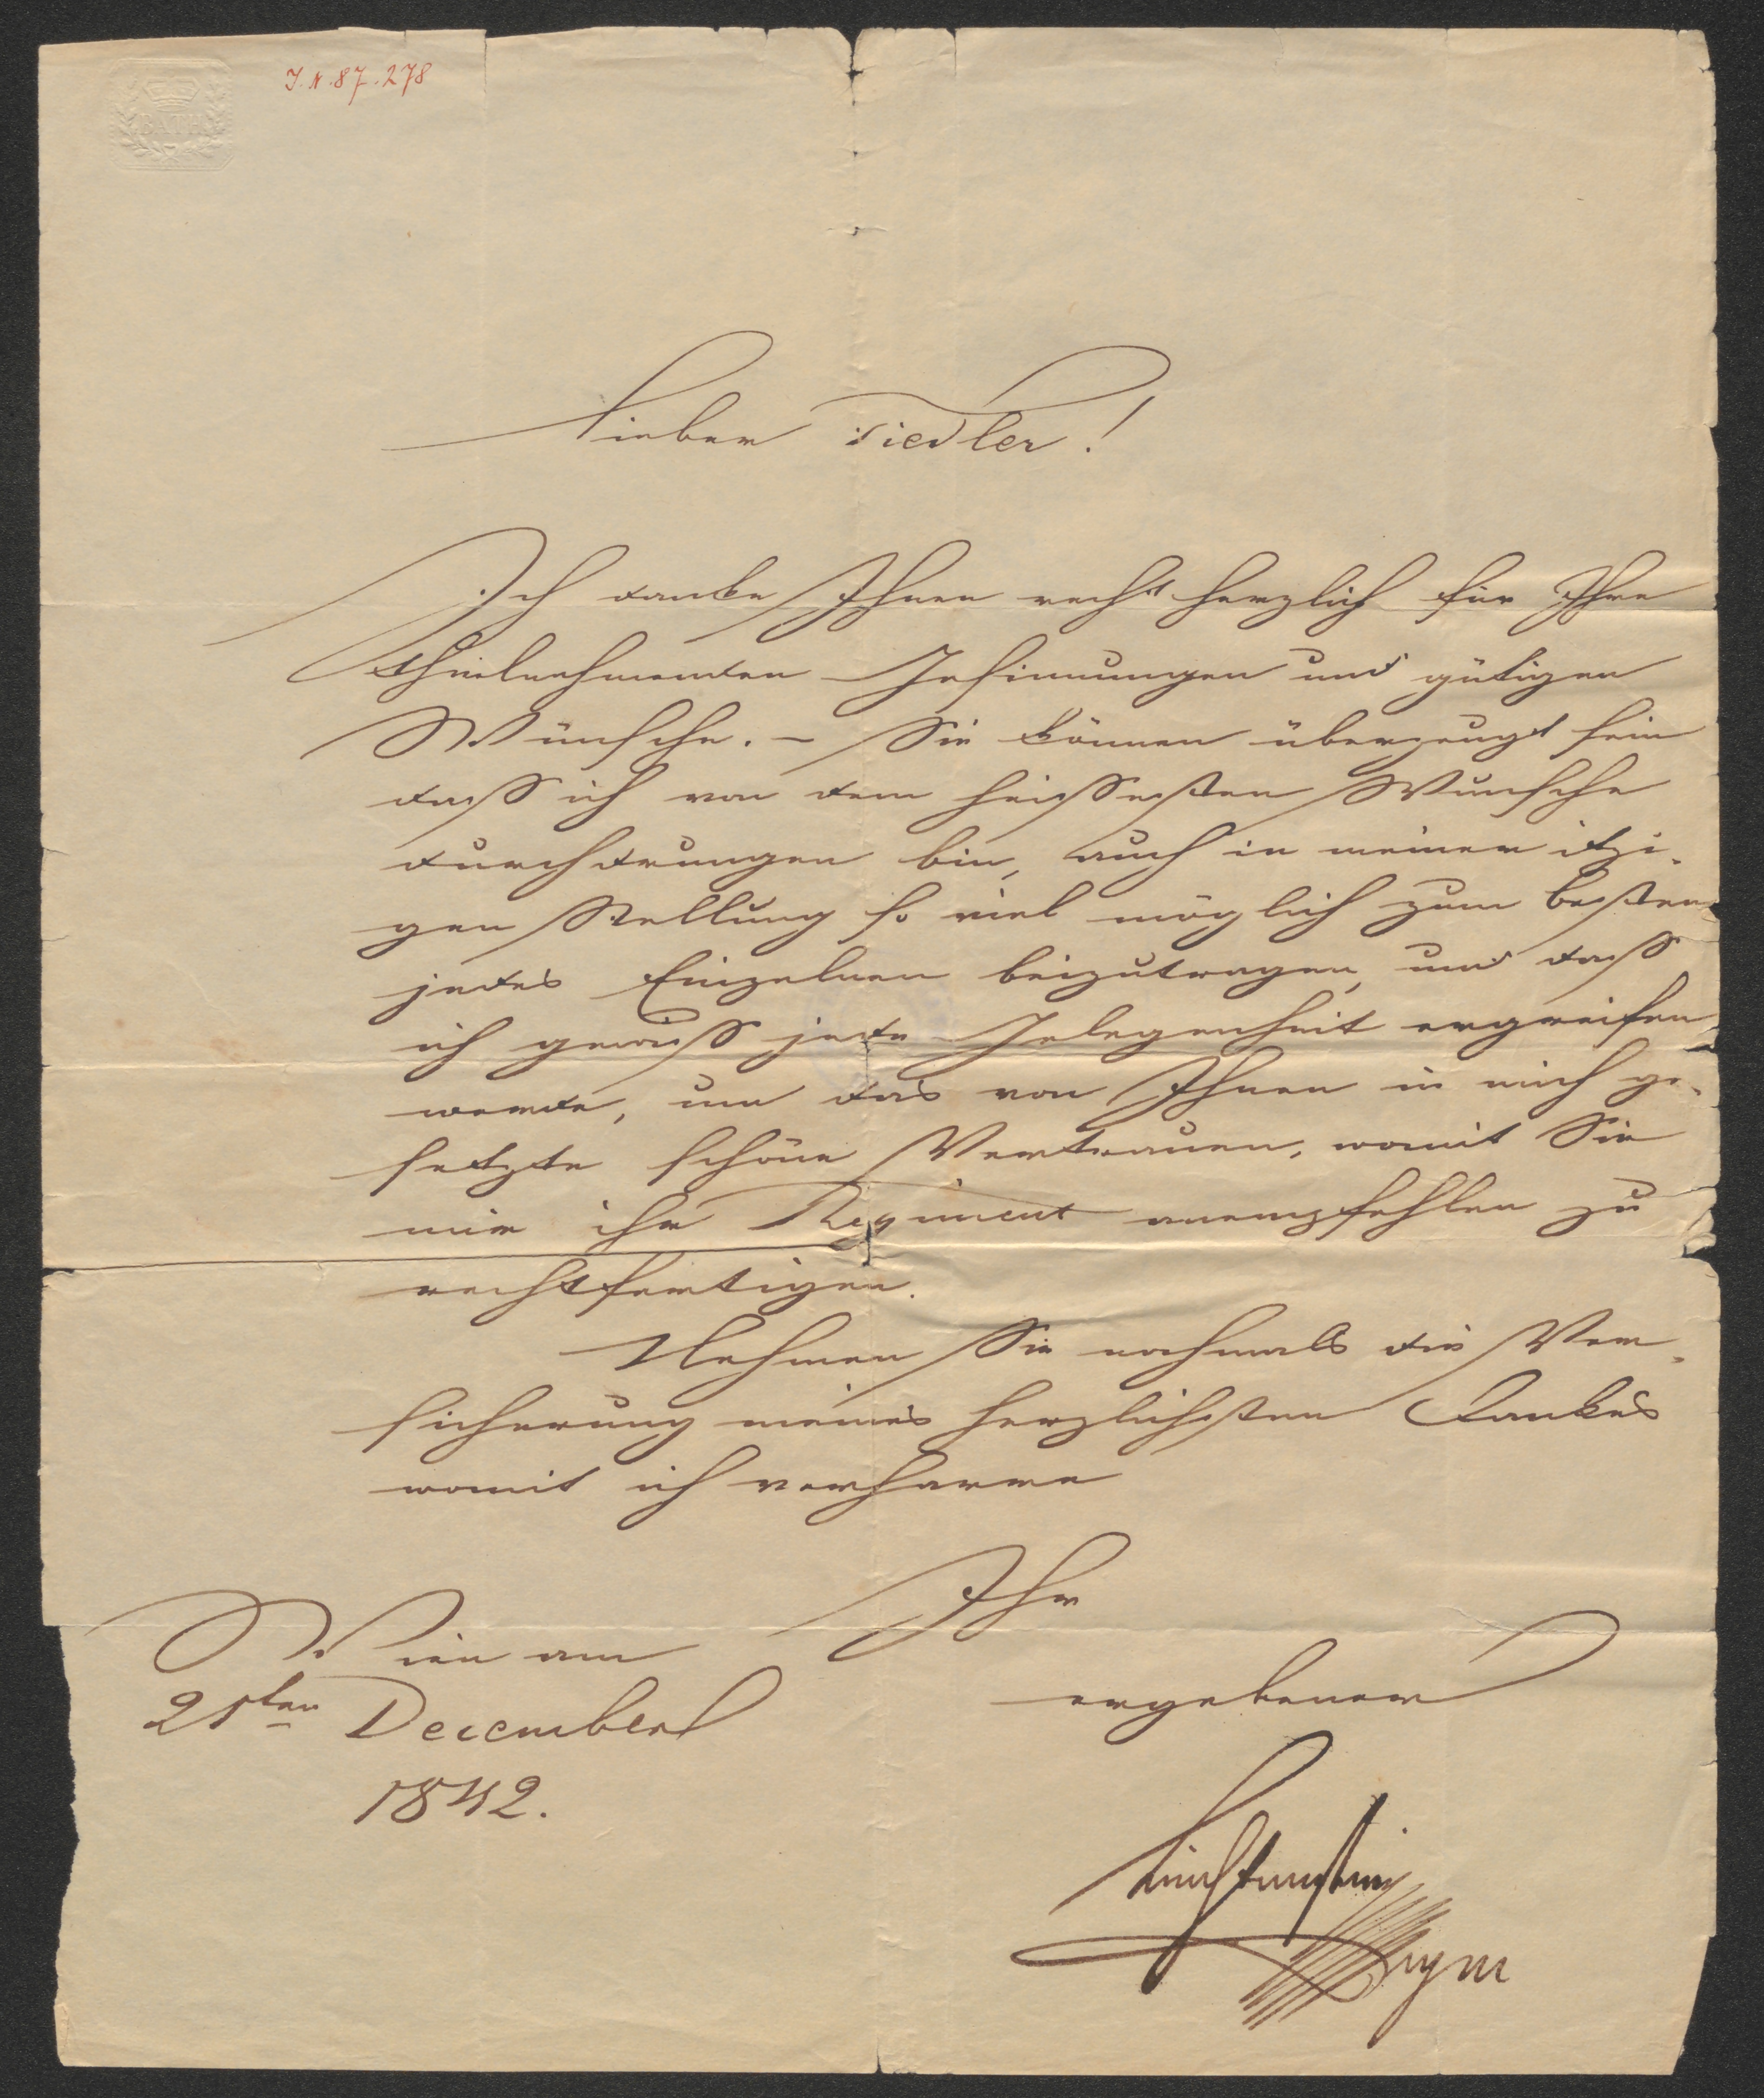 J.N. 87.278
BATH
Lieber Fiedler!
Ich danke Ihnen recht herzlich für Ihre
theilnehmenden Gesinnungen und gütigen
Wünsche. – Sie können überzeugt sein
daß ich von dem heißesten Wunsche
durchdrungen bin, auch in meiner itzi-
gen Stellung so viel möglich zum besten
jedes Einzelnen beizutragen, und daß
ich gewiß jede Gelegenheit ergreifen
werde, um das von Ihnen in mich ge-
setzte schöne Vertrauen, womit Sie
mir ihr Regiment anempfehlen zu
rechtfertigen.
Nehmen Sie nochmals die Ver-
sicherung meines herzlichsten Dankes
womit ich verharre
Ihr
Wien am
ergebener
21ten December
1842.
Liechtenstein